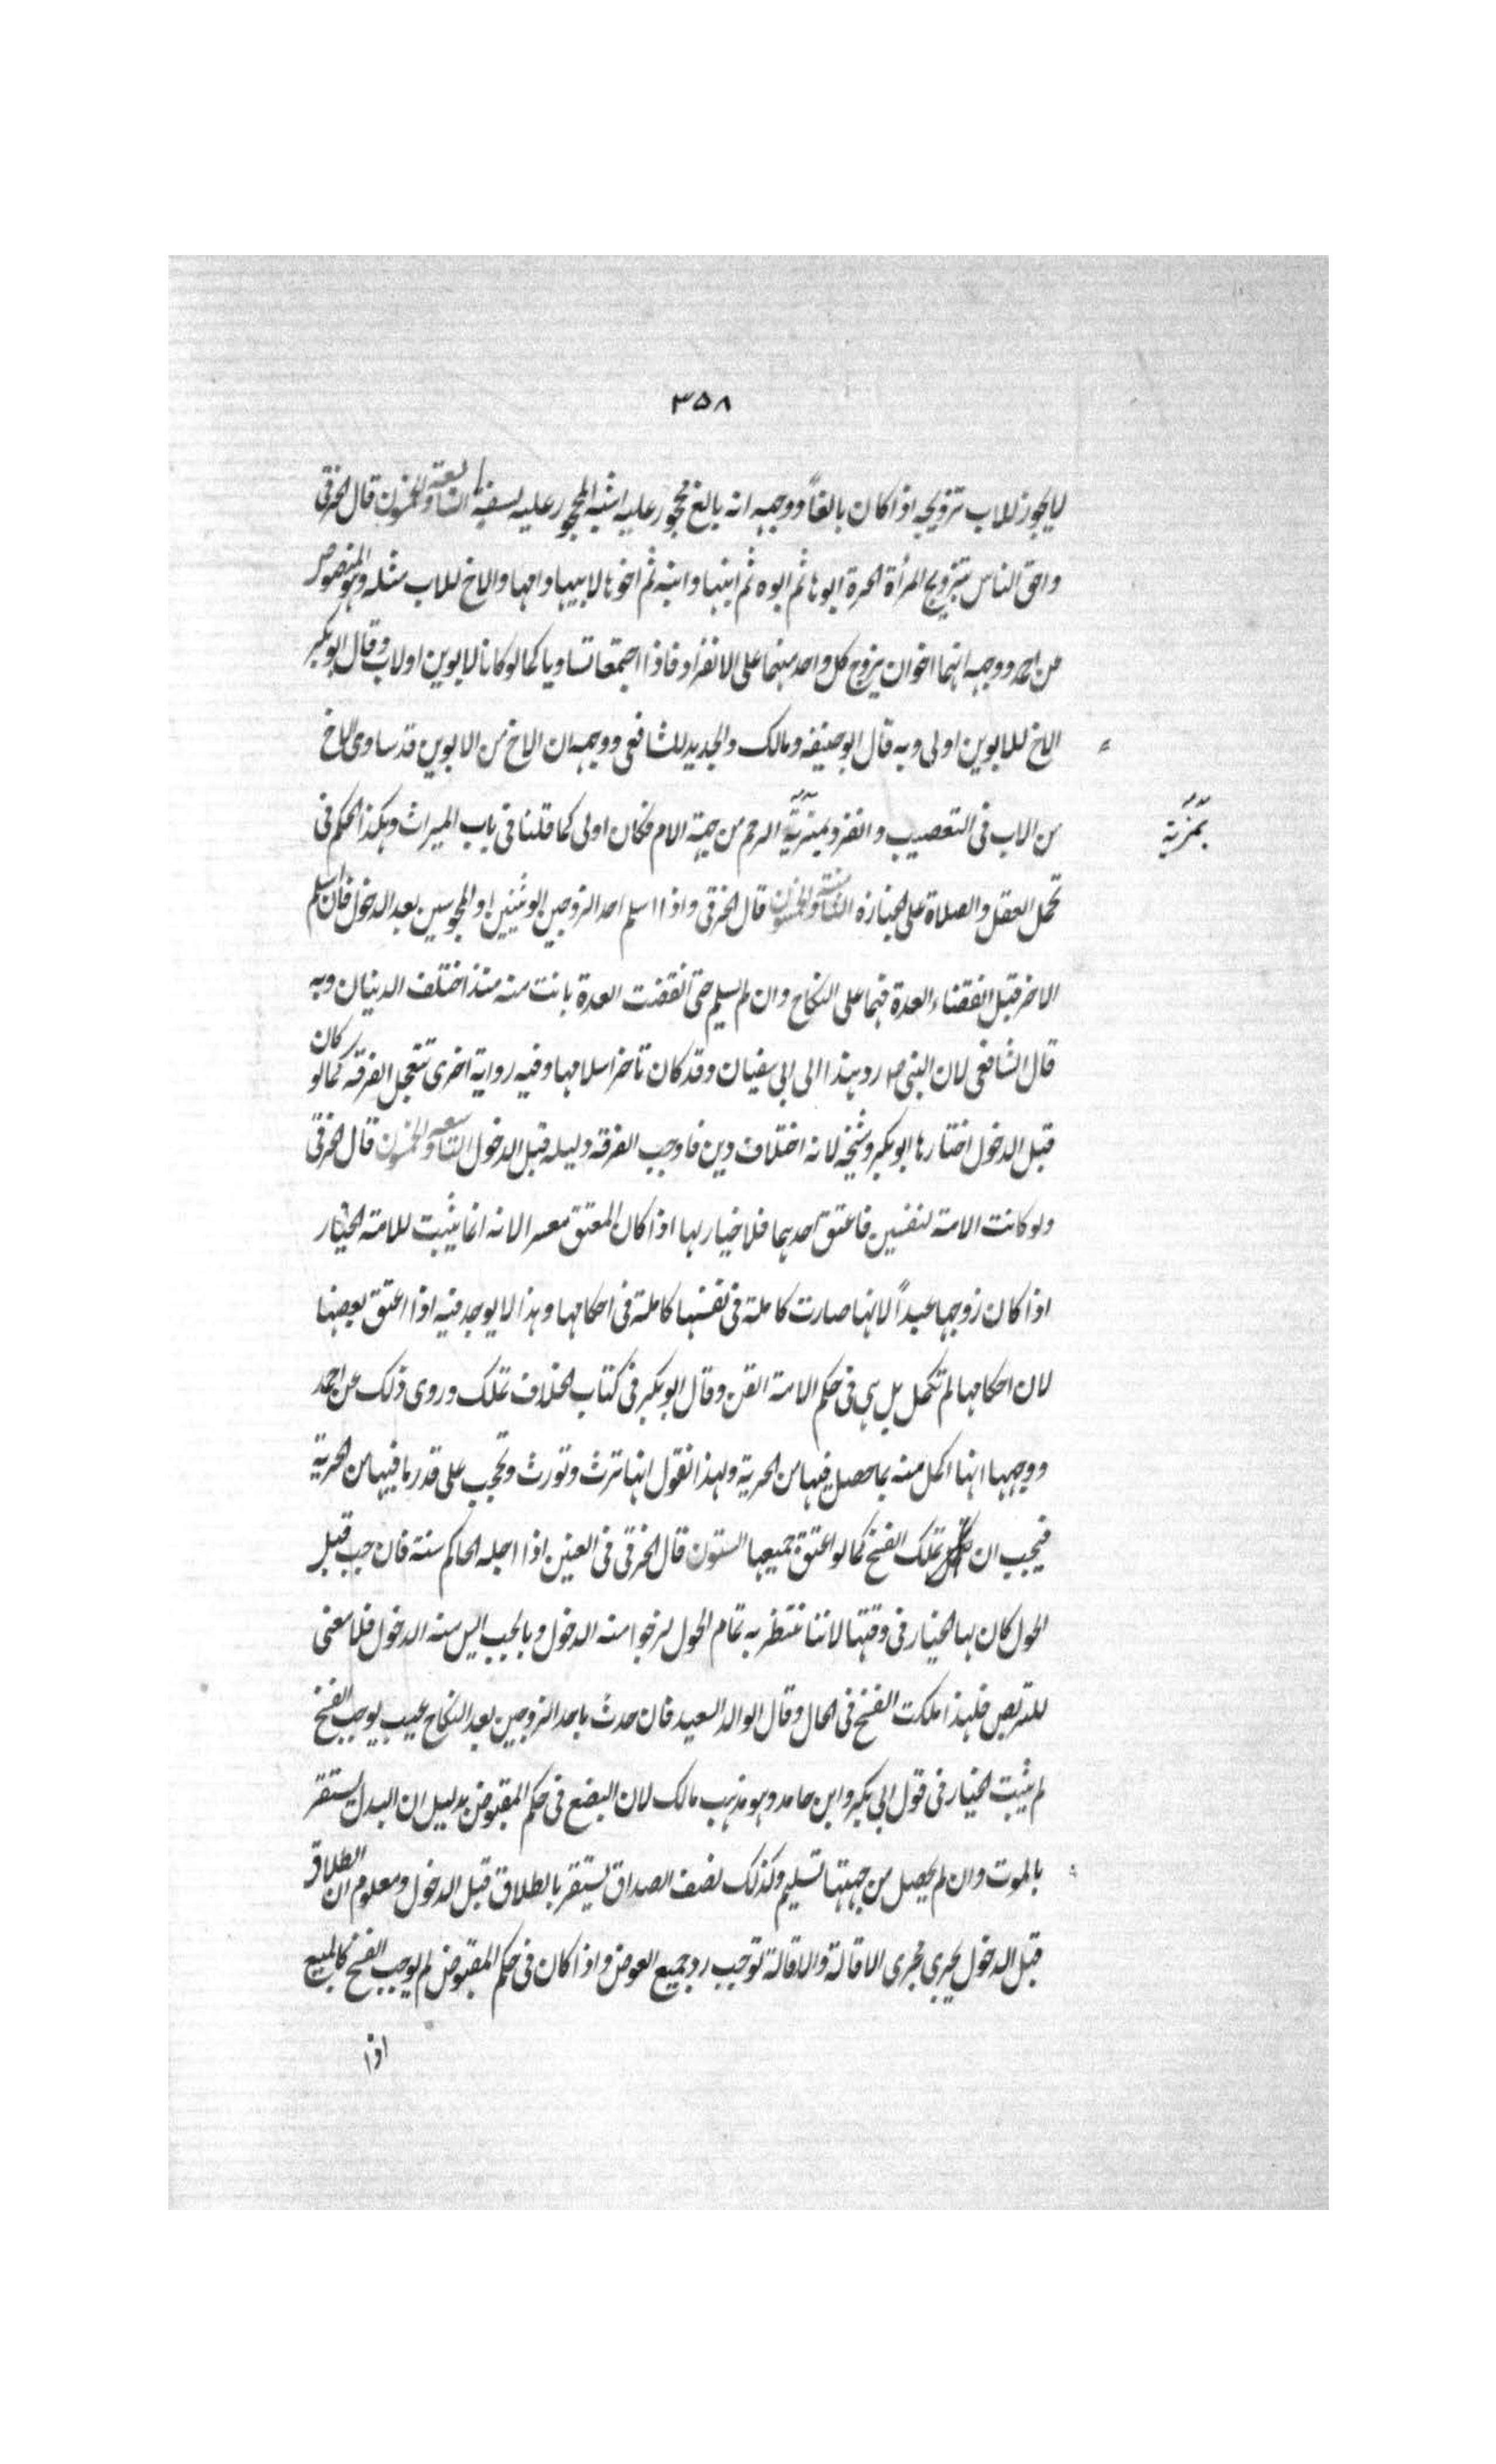 ٣٥٨
لا يجوز للاب تزويجه اذا كان بالغاً ووجهه انه بالغ محجور عليه اشبه المحجور عليه لسفه السابعة والخمسون قال الخرقى
واحق الناس بتزويج المرأة الحرة ابوها ثم ابوه ثم ابنها وابنه ثم اخوها لابيها وامها والاخ للاب مثله وهو المنصوص
عن احمد ووجهه انهما اخوان يزوج كل واحد منهما على الانفراد فاذا اجتمعا تساويا كما لو كانا لابوين او لاب وقال ابو بكر
الاخ للابوين اولى وبه قال ابو حنيفة ومالك والجديد للشافعى ووجهه ان الاخ من الابوين قد ساوى الاخ
من الاب فى التعصيب وانفرد بمزية الرحم من جهة الام فكان اولى كما قلنا فى باب الميراث وهكذا الحكم فى
بمزية
تحمل العقل والصلاة على الجنازة الثامنة والخمسون قال الخرقى واذا اسلم احد الزوجين الوثنيين او المجوسين بعد الدخول فان اسلم
الاخر قبل انقضاء العدة فهما على النكاح وان لم يسلم حتى انقضت العدة بانت منه منذ اختلف الدينان وبه
قال الشافعى لان النبى صلعم رد هندا الى ابى سفيان وقد كان تاخر اسلامها وفيه رواية اخرى تتعجل الفرقة كما لو كان
قبل الدخول اختارها ابو بكر وشيخه لانه اختلاف دين فاوجب الفرقة دليله قبل الدخول التاسعة والخمسون قال الخرقى
ولو كانت الامة لنفسين فاعتق احدهما فلا خيار لها اذا كان المعتق معسرا لانه انما يثبت للامة الخيار
اذا كان زوجها عبداً لانها صارت كاملة فى نفسها كاملة فى احكامها وهذا لا يوجد فيه اذا اعتق بعضها
لان احكامها لم تكمل بل هى فى حكم الامة القن وقال ابو بكر فى كتاب الخلاف تملك وروى ذلك عن احمد
ووجهها انها اكمل منه بما حصل فيها من الحرية ولهذا نقول انها ترث وتورث وتحجب على قدر ما فيها من الحرية
فيجب ان تملك الفسخ كما لو اعتق جميعها الستون قال الخرقى فى العنين اذا اجله الحاكم سنة فان جب قبل
الحول كان لها الخيار فى وقتها لاننا ننتظر به تمام الحول لنرجوا منه الدخول وبالجب ايس منه الدخول فلا معنى
للتربص فلهذا ملكت الفسخ فى الحال وقال الوالد السعيد فان حدث باحد الزوجين بعد النكاح عيب يوجب الفسخ
لم يثبت الخيار فى قول ابى بكر وابن حامد وهو مذهب مالك لان البضع فى حكم المقبوض بدليل ان البدل يستقر
بالموت وان لم يحصل من جهتها تسليم وكذلك نصف الصداق يستقر بالطلاق قبل الدخول ومعلوم ان الطلاق
قبل الدخول يجرى مجرى الاقالة والاقالة توجب رد جميع العوض واذا كان فى حكم المقبوض لم يوجب الفسخ كالمبيع
اذا